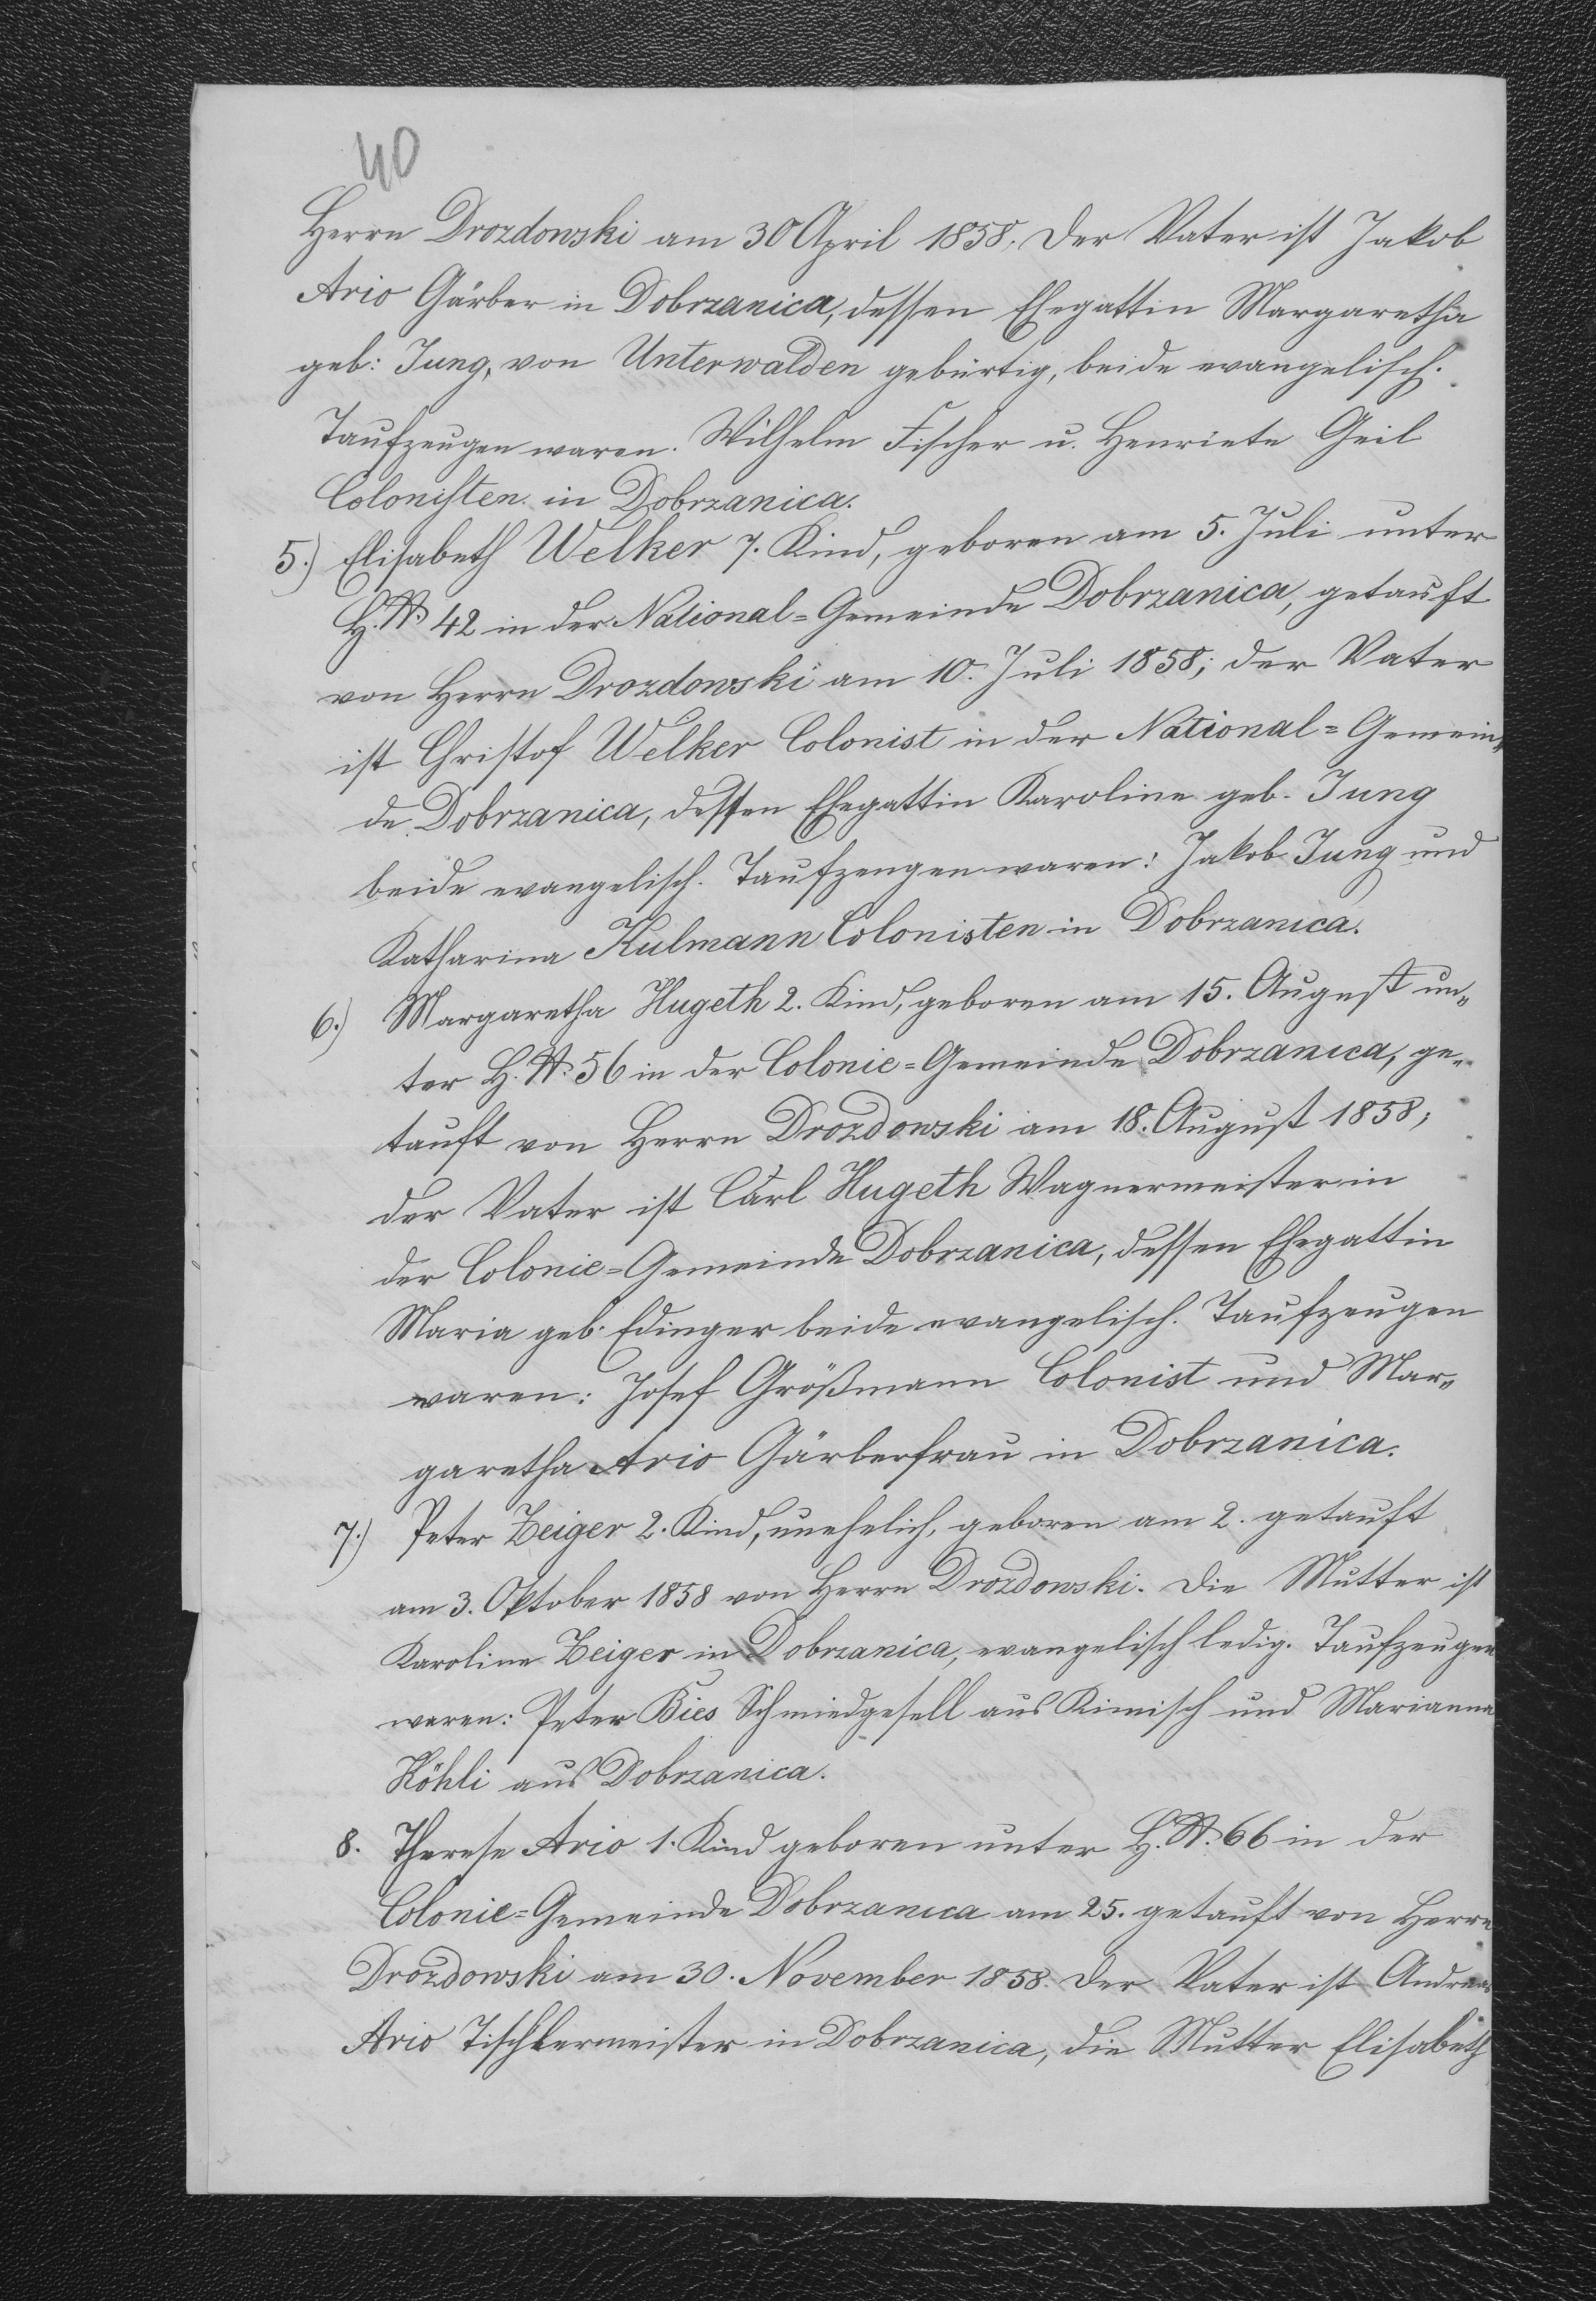 40
Herrn Drozdowski am 30 April 1858. Der Vater ist Jakob
Ario Gärber in Dobrzanica, dessen Ehegattin Margaretha
geb: Jung, von Unterwalden gebürtig, beide evangelisch.
Taufzeugen waren. Wilhelm Fischer u. Henriete Geil
Colonisten in Dobrzanica.
5.) Elisabeth Welker 7. Kind, geboren am 5. Juli unter
H. N. 42 in der National=Gemeinde Dobrzanica, getauft
von Herrn Drozdowski am 10. Juli 1858; der Vater
ist Christof Welker Colonist in der National=Gemein„
de Dobrzanica, dessen Ehegattin Karoline geb. Jung
beide evangelisch. Taufzeugen waren: Jakob Jung und
Katharina Kulmann Colonisten in Dobrzanica.
6.) Margaretha Hugeth 2. Kind, geboren am 15. August un„
ter H. N. 56 in der Colonie=Gemeinde Dobrzanica, ge„
tauft von Herrn Drozdowski am 18. August 1858;
der Vater ist Carl Hugeth Wagnermeister in
der Colonie=Gemeinde Dobrzanica, dessen Ehegattin
Maria geb: Edinger beide evangelisch. Taufzeugen
waren: Josef Größmann Colonist und Mar„
garetha Ario Gärberfrau in Dobrzanica.
7.) Peter Zeiger 2. Kind, unehelich, geboren am 2. getauft
am 3. Oktober 1858 von Herrn Drozdowski. Die Mutter ist
Karoline Zeiger in Dobrzanica, evangelisch ledig. Taufzeugen
waren: Peter Bies Schmiedgesell aus Kimisch und Marianna
Köhli aus Dobrzanica.
8. Therese Ario 1. Kind geboren unter H. N. 66 in der
Colonie=Gemeinde Dobrzanica am 25. getauft von Herrn
Drozdowski am 30. November 1858. Der Vater ist Andreas
Ario Tischlermeister in Dobrzanica, die Mutter Elisabeth